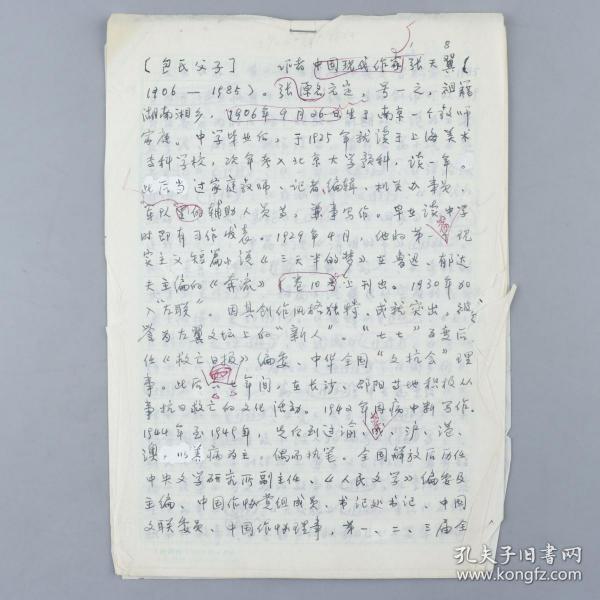 8
[包氏父子] 作者中国现代作家张天翼(
1906—1985)。张原名元定,号一之,祖籍
湖南湘乡,1906年9月26日生于南京一个教师
家庭。中学毕业后,于1925年就读于上海美术
专科学校,次年考入北京大学预科,读一年。
此后当过家庭教师、记者、编辑、机关办事员、
军队里的辅助人员等,兼事写作。早在读中学
时即有习作发表。1929年4月,他的第一篇现
实主义短篇小说《三天半的梦》在鲁迅、郁达
夫主编的《奔流》1卷10号上刊出。1930年加
入"左联"。因其创作风格独特,成就突出,被
誉为左翼文坛上的"新人"。"七七"事变后
任《救亡日报》编委、中华全国"文抗会"理
事。此后六七年间,在长沙、邵阳等地积极从
事抗日救亡的文化活动。1942年因病中断写作。
1944年至1945年,先后到过渝、沪、港、
澳,以养病为主,偶而执笔。全国解放后历任
中央文学研究所副主任、《人民文学》编委及
主编、中国作协党组成员、书记处书记、中国
文联委员、中国作协理事,第一、二、三届全
孔夫子旧书网
www.kongfz.com